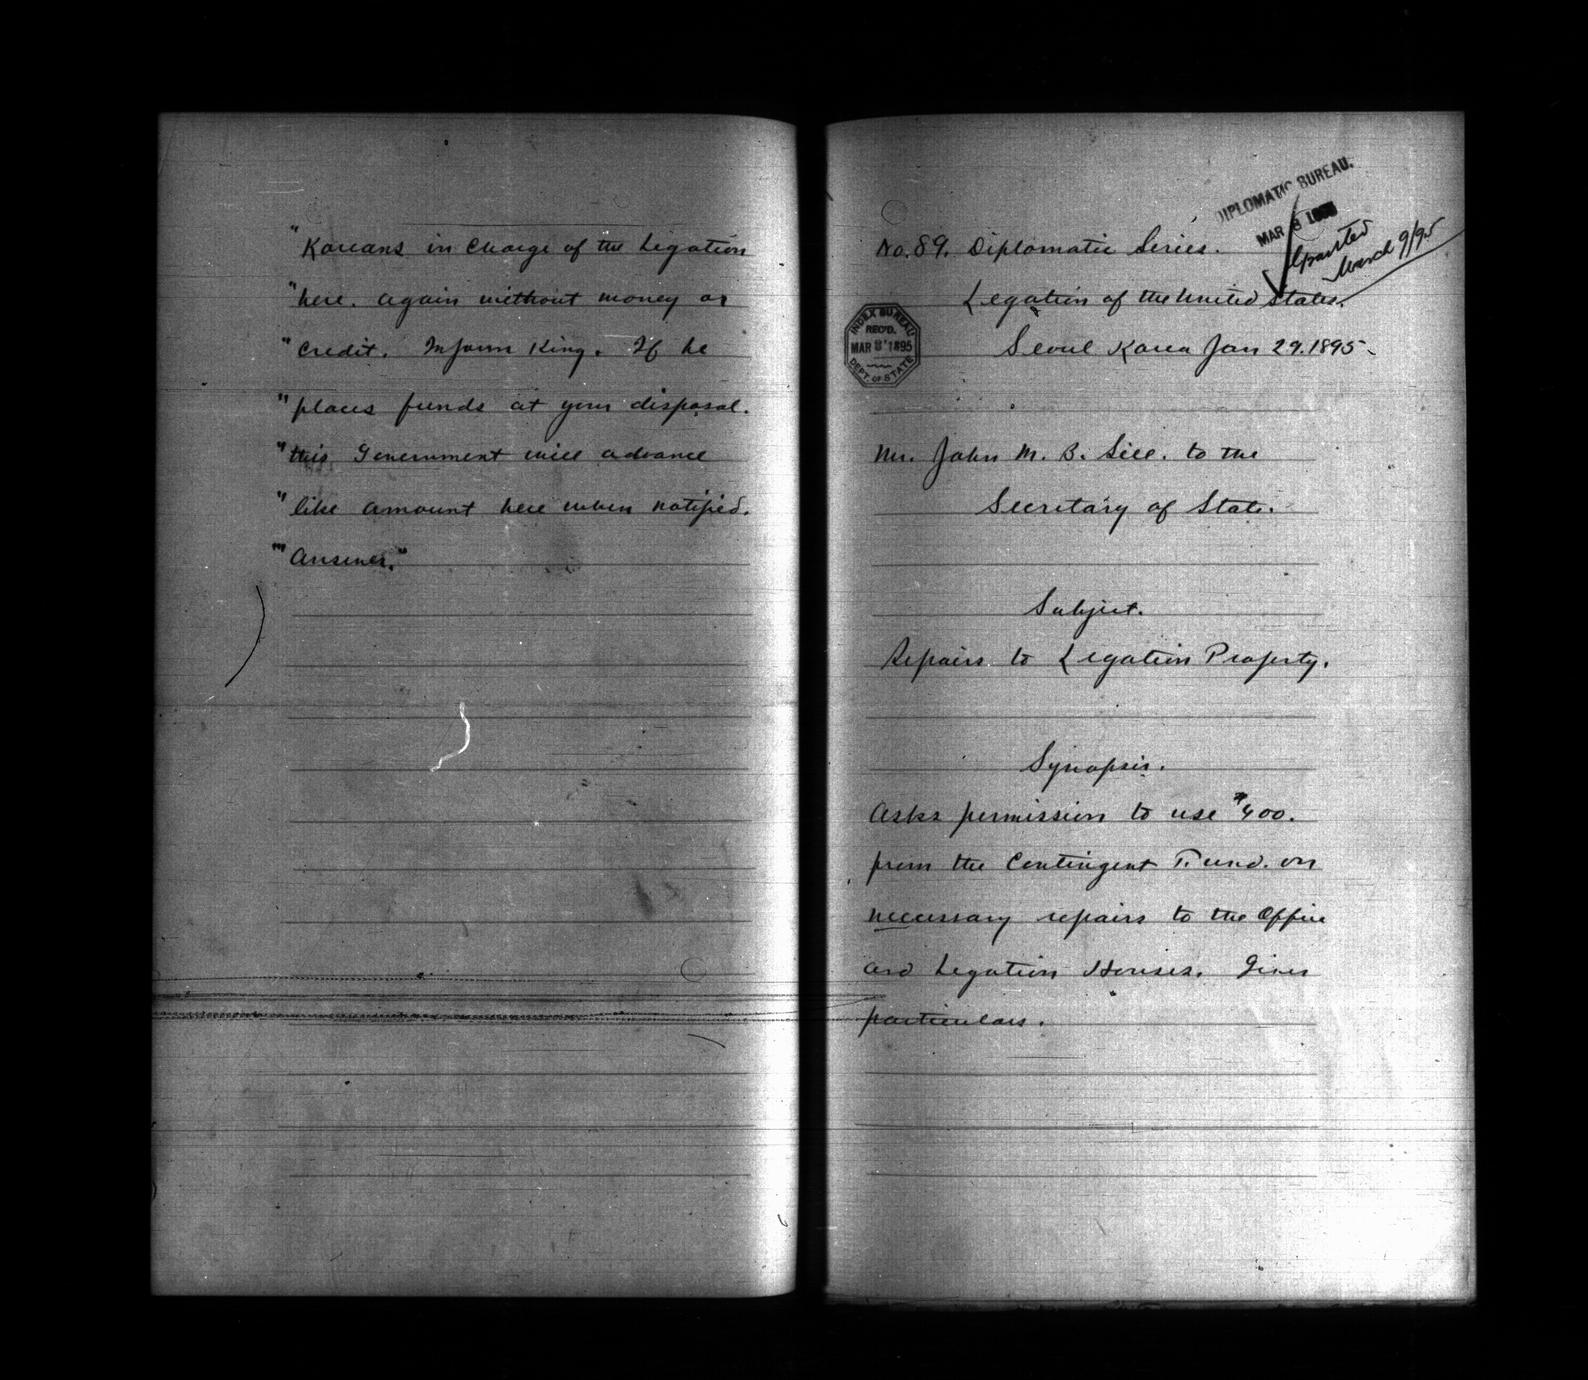 "Koreans in charge of the Legation
"here. again without money or
"credit. Inform King. If he
"places funds at your disposal.
"this Government will advance
"like amount here when notified.
"'Answer."
DIPLOMATIC BUREAU.
MAR 8 1895
March 9/95
No. 89. Diplomatic Series.
Legation of the United States.
Seoul Korea Jan 29. 1895.
INDEX BUREAU
REC'D.
MAR 8 1895
DEPT. OF STATE
Mr. John M. B. Sill. to the
Secretary of State.
Subject.
Repairs to Legation Property.
Synopsis.
Asks permission to use $400.
from the Contingent Fund. on
necessary repairs to the Office
and Legation Houses. Gives
particulars.